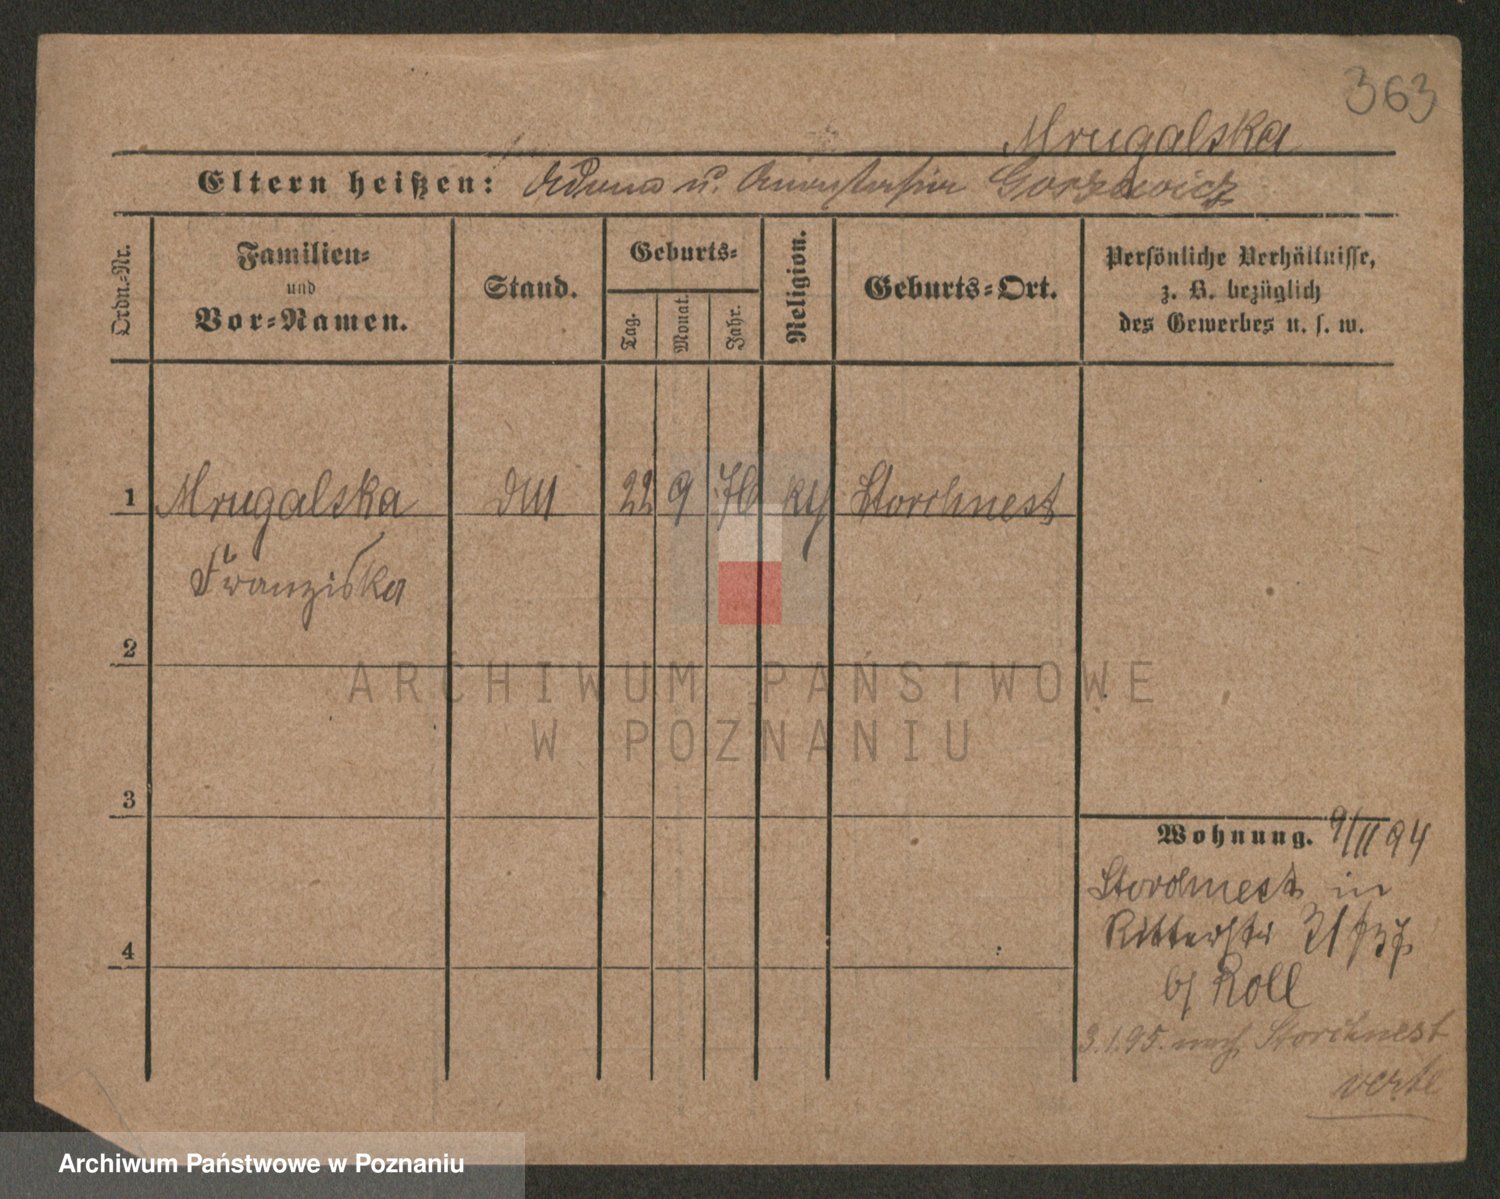 363
Mrugalska
Eltern heißen: u. Gorzewicz
Ordn.-Nr.
Familien-
und
Vor-Namen.
Stand.
Geburts-
Tag.
Monat.
Jahr.
Religion.
Geburts-Ort.
Persönliche Verhältnisse,
z. B. bezüglich
des Gewerbes u. s. w.
1 Mrugalska 22 9 76 Storchnest
Franziska
2
3
4
Wohnung. 9/11 94
Storchnest in
Ritterstr
bj Roll
3.1.95. nach Storchnest
verte
ARCHIWUM PAŃSTWOWE
W POZNANIU
Archiwum Państwowe w Poznaniu